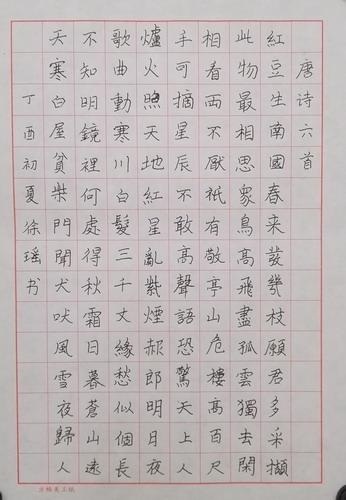 唐诗六首
紅豆生南國春来發幾枝願君多采擷
此物最相思眾鳥高飛盡孤雲獨去閑
相看两不厭祇有敬亭山危樓高百尺
手可摘星辰不敢高聲語恐驚天上人
爐火照天地紅星亂紫煙赧郎明月夜
歌曲動寒川白髮三千丈緣愁似個長
不知明鏡裡何處得秋霜日暮蒼山遠
天寒白屋貧柴門聞犬吠風雪夜歸人
丁酉初夏徐瑶书